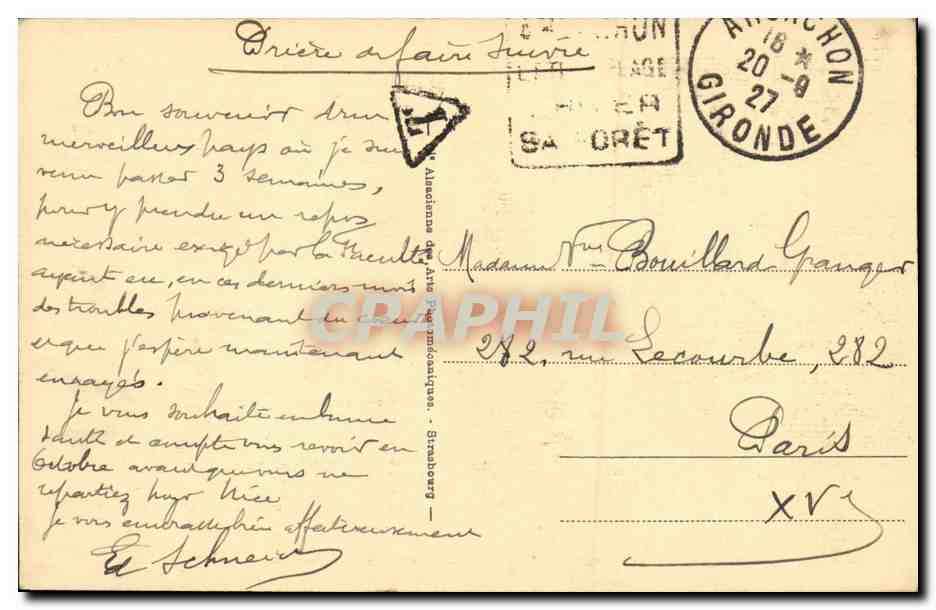 Prière de faire suivre
ARCACHON
PLAGE
HIVER
SA FORÊT
ARCACHON
18 *
20 - 9
27
GIRONDE
T
Bon souvenir d'un
merveilleux pays où je suis
venu passer 3 semaines,
pour y prendre un repos
nécessaire exigé par la Faculté
ayant eu, en ces derniers mois
des troubles provenant du coeur
et que j'espère maintenant
enrayés.
Je vous souhaite en bonne
santé et compte vous revoir en
Octobre avant que vous ne
repartiez pour Nice
Je vous embrasse bien affectueusement
Ed Schneider
Alsacienne des Arts Photomécaniques. - Strasbourg
Madame Vve Bouillard Granger
282, rue Lecourbe, 282
Paris
XVe
CPAPHIL